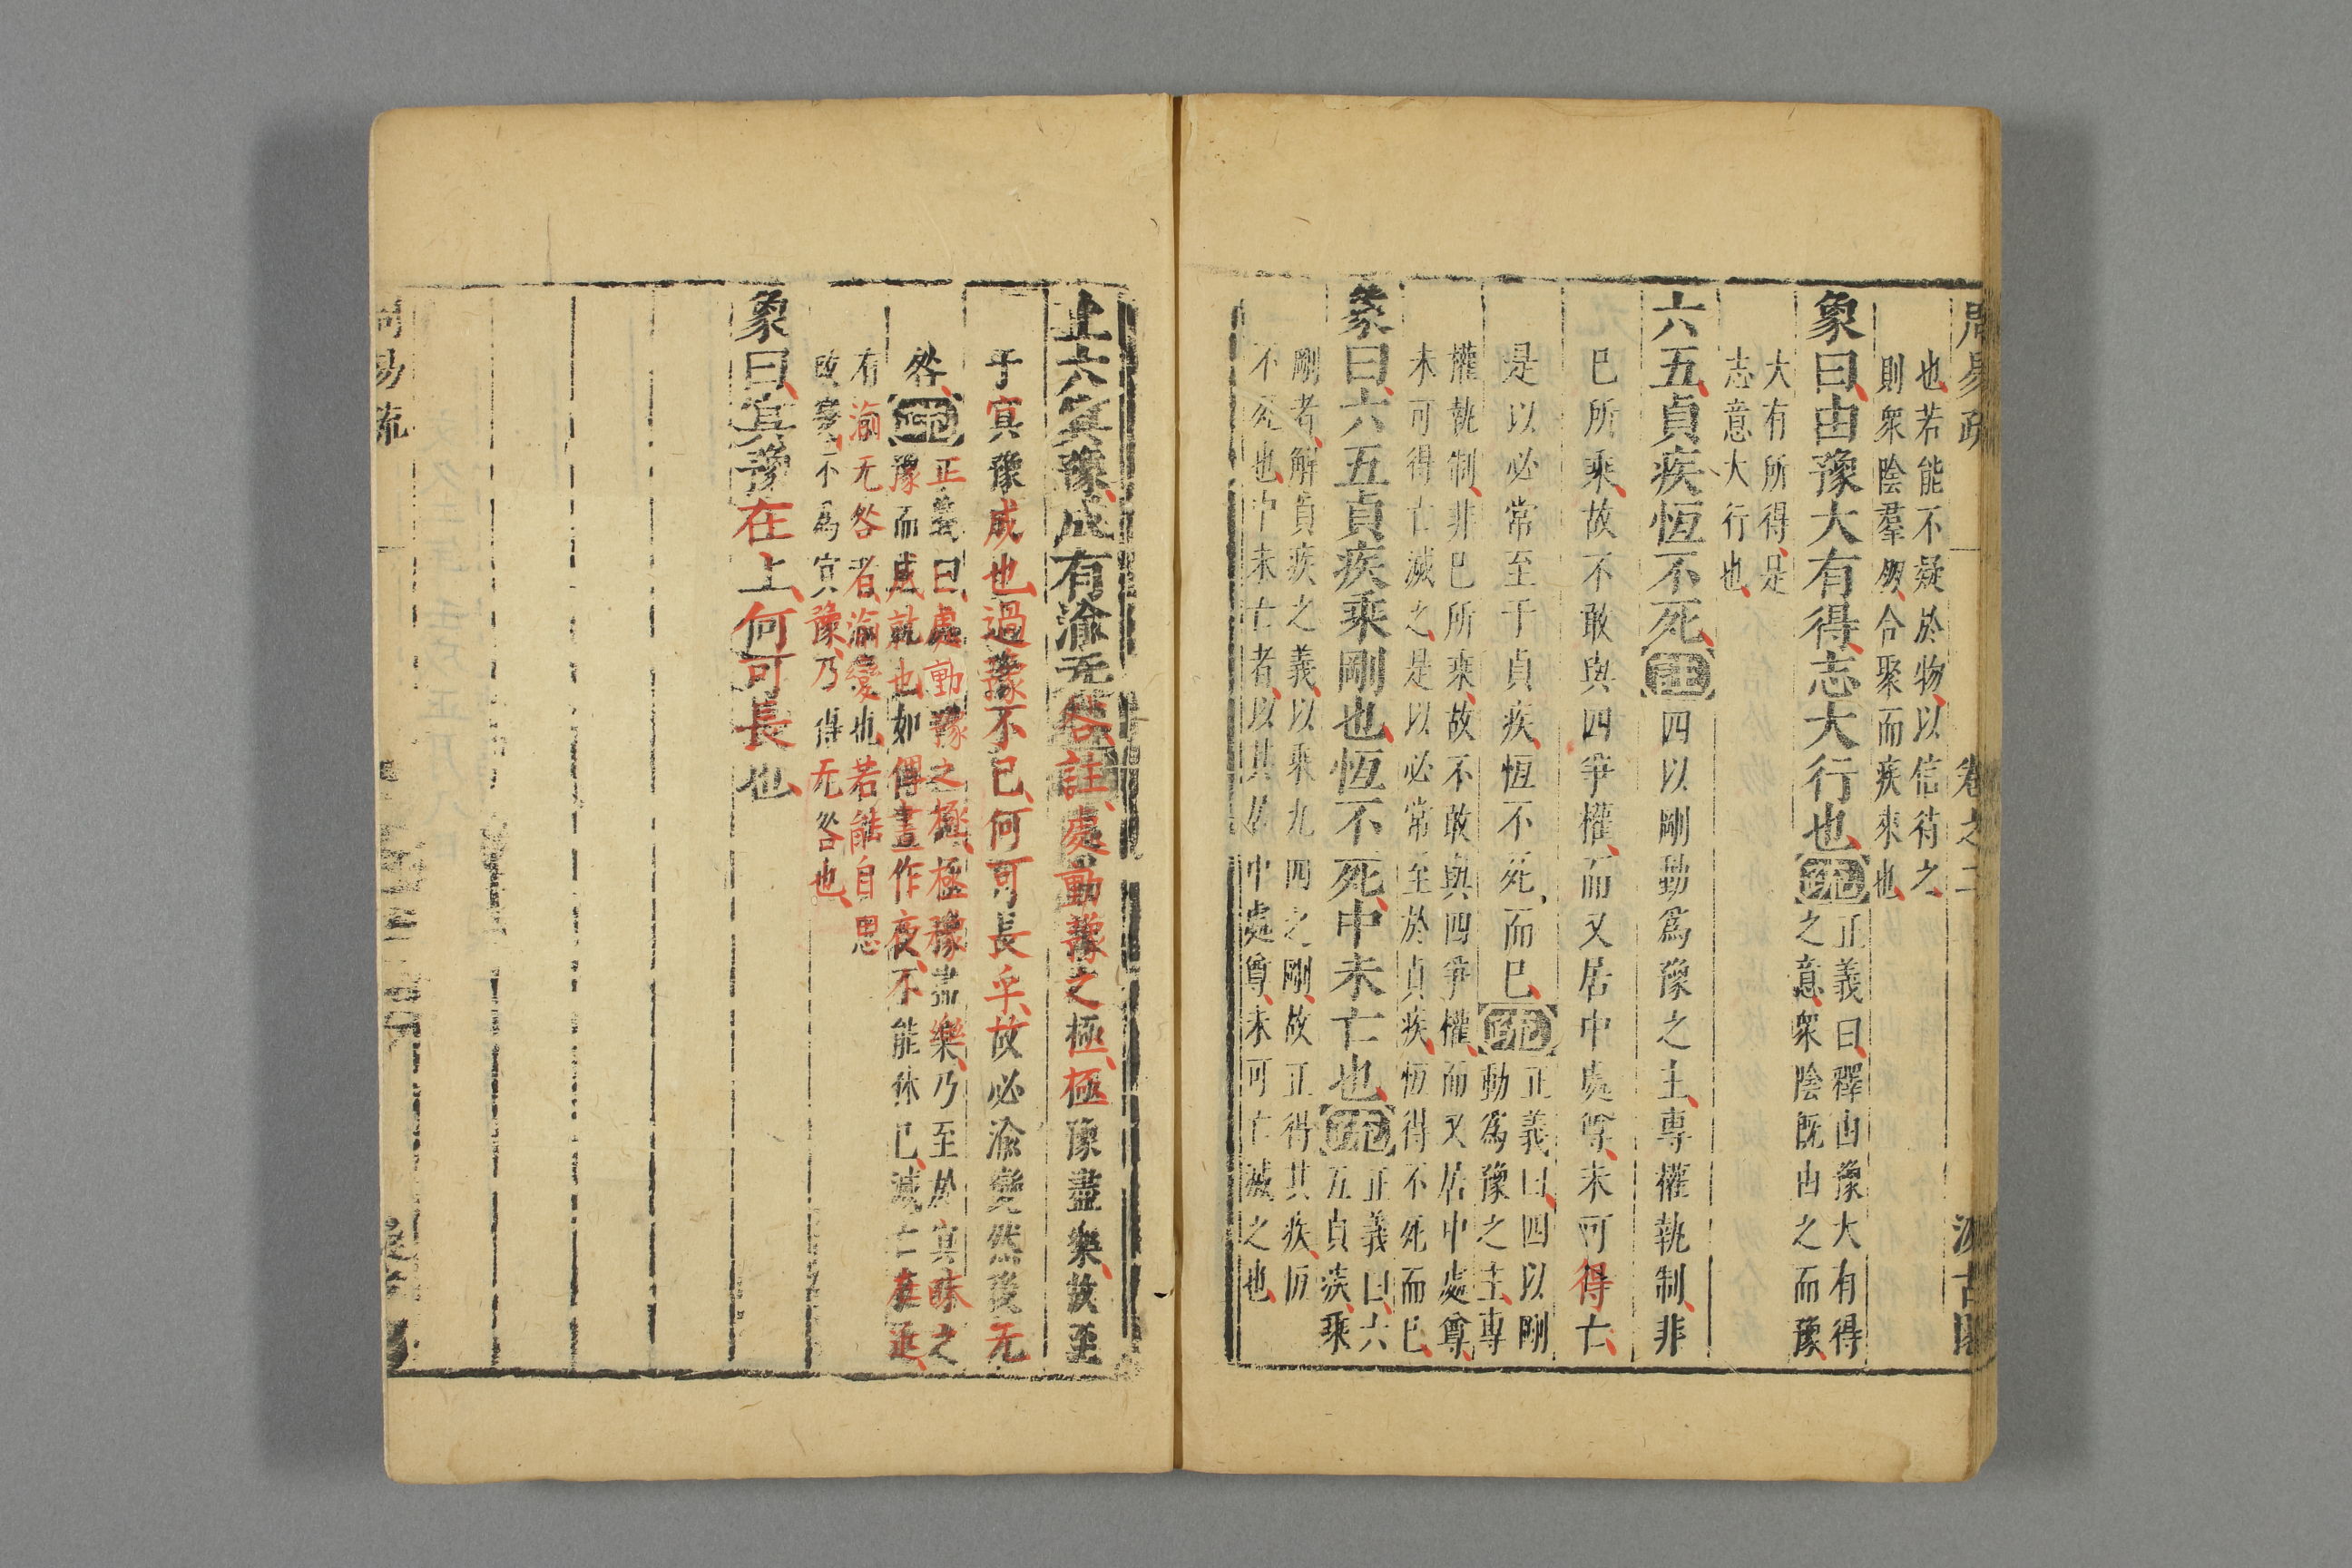 周易疏
卷之二
汲古閣
也若能不疑於物以信待之
則衆陰羣朋合聚而疾來也
象曰由豫大有得志大行也疏
正義曰釋由豫大有得
之意衆陰旣由之而豫
大有所得是
志意大行也
六五貞疾恆不死註四以剛動爲豫之主專權執制非
已所乘故不敢與四爭權而又居中處尊未可得亡
是以必常至于貞疾恆不死而已疏
正義曰四以剛
動爲豫之主專
權執制非已所乘故不敢與四爭權而又居中處尊
未可得亡滅之是以必常至於貞疾恆得不死而已
象曰六五貞疾乘剛也恆不死中未亡也疏
正義曰六
五貞疾乘
剛者解貞疾之義以乘九四之剛故正得其疾恆
不死也中未亡者以其居中處尊未可亡滅之也
上六冥豫成有渝无咎註處動豫之極極豫盡樂故至
于冥豫成也過豫不已何可長乎故必渝變然後无
咎疏
正義曰處動豫之極極豫盡樂乃至於冥昧之
豫而成就也如俾晝作夜不能休已滅亡在近
有渝无咎者渝變也若能自思
改變不爲冥豫乃得无咎也
象曰冥豫在上何可長也
周易疏